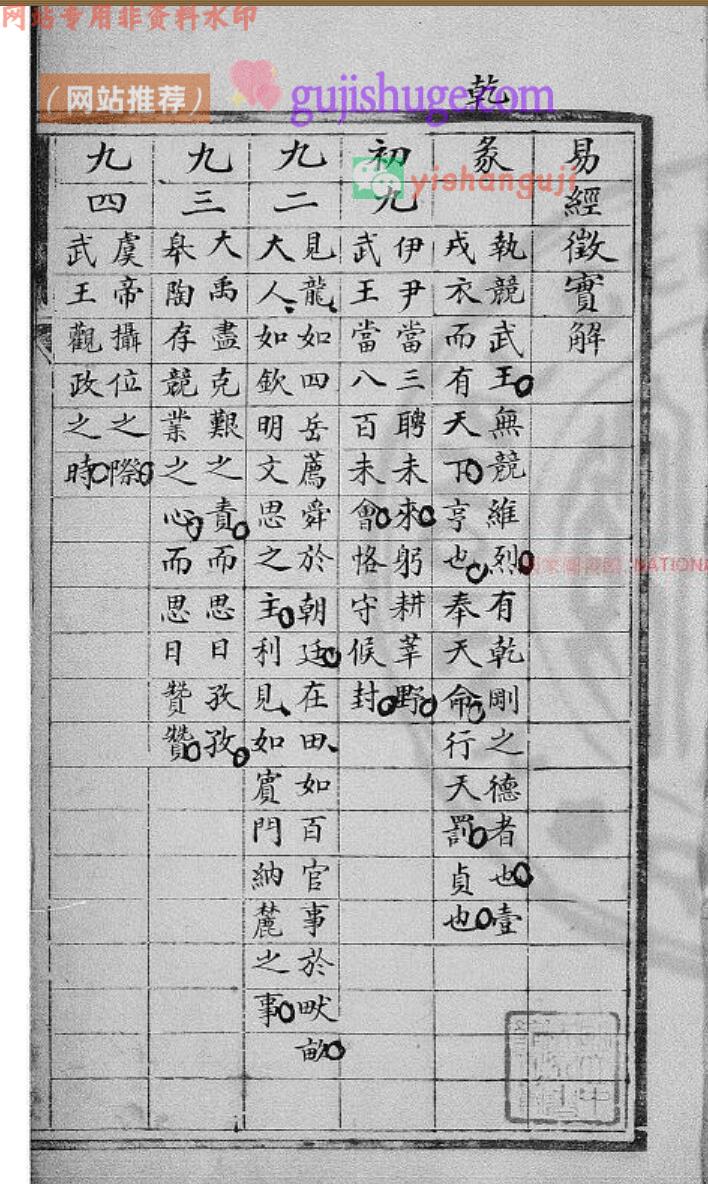 网站专用非资料水印
（网站推荐）
gujishuge.com
yishanguji
乾
易經徵實解
彖
執競武王無競維烈有乾剛之德者也壹
戎衣而有天下亨也奉天命行天罰貞也
初九
伊尹當三聘未來躬耕莘野
武王當八百未會恪守候封
九二
見龍如四岳薦舜於朝廷在田如百官事於畎畝
大人如欽明文思之主利見如賓門納麓之事
九三
大禹盡克艱之責而思日孜孜
皋陶存競業之心而思日贊贊
九四
虞帝攝位之際
武王觀政之時
NATIONA